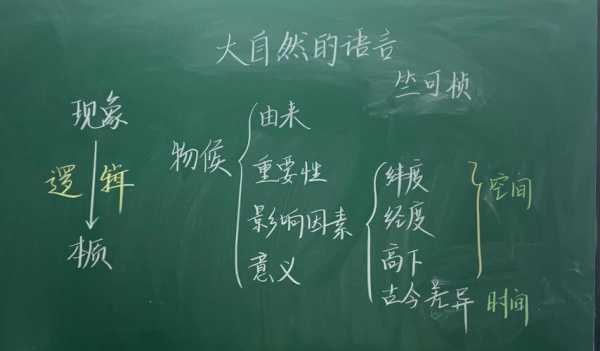 大自然的语言
竺可桢
现象
逻辑
本质
物候
由来
重要性
影响因素
意义
纬度
经度
高下
古今差异
空间
时间